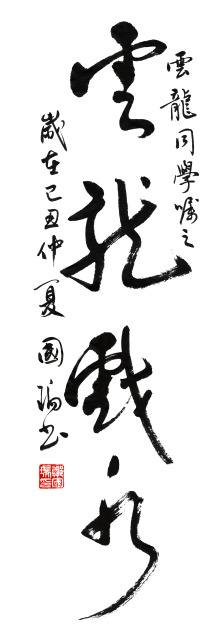 雲龍同學嘱之
雲龍戲水
歲在己丑仲夏國瑞书